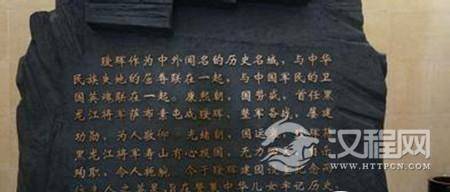 瑷珲作为中外闻名的历史名城，与中华
民族失地的屈辱联在一起，与中国军民的卫
国英雄联在一起。康熙朝，国势威，首任黑
龙江将军萨布素屯戍瑷珲，整军备战，屡建
功勋，为人敬仰。光绪朝，国运
黑龙江将军寿山有心报国，无力
殉职，令人扼腕。今于瑷珲建
中华儿女牢记历史，
汉程网
WWW.HTTPCN.COM